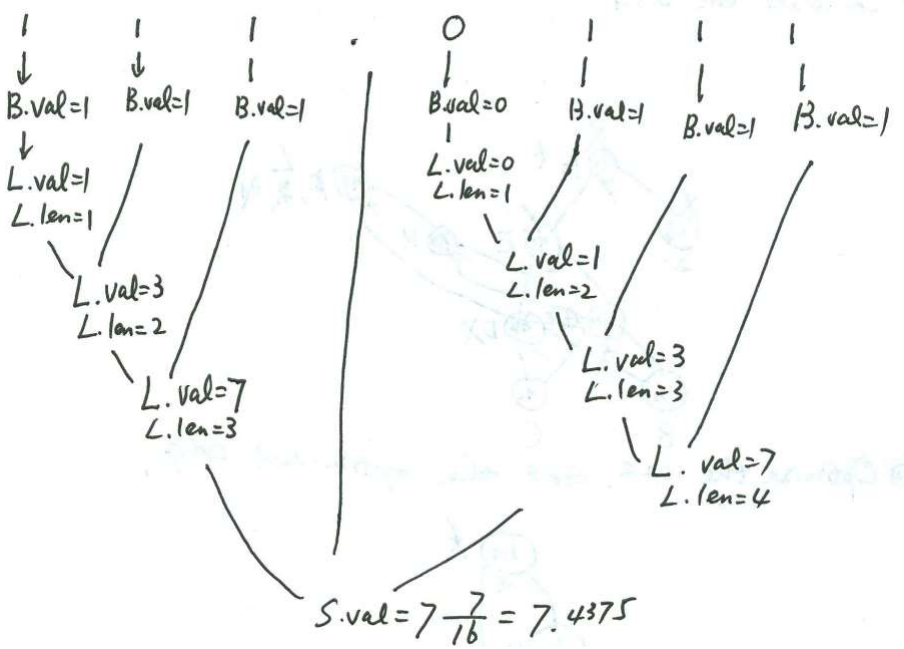 1 1 1 . 0 1 1 1
B.val=1 B.val=1 B.val=1 B.val=0 B.val=1 B.val=1 B.val=1
L.val=1 L.val=0
L.len=1 L.len=1
L.val=3 L.val=1
L.len=2 L.len=2
L.val=7 L.val=3
L.len=3 L.len=3
L.val=7
L.len=4
S.val=7 7/16 = 7.4375